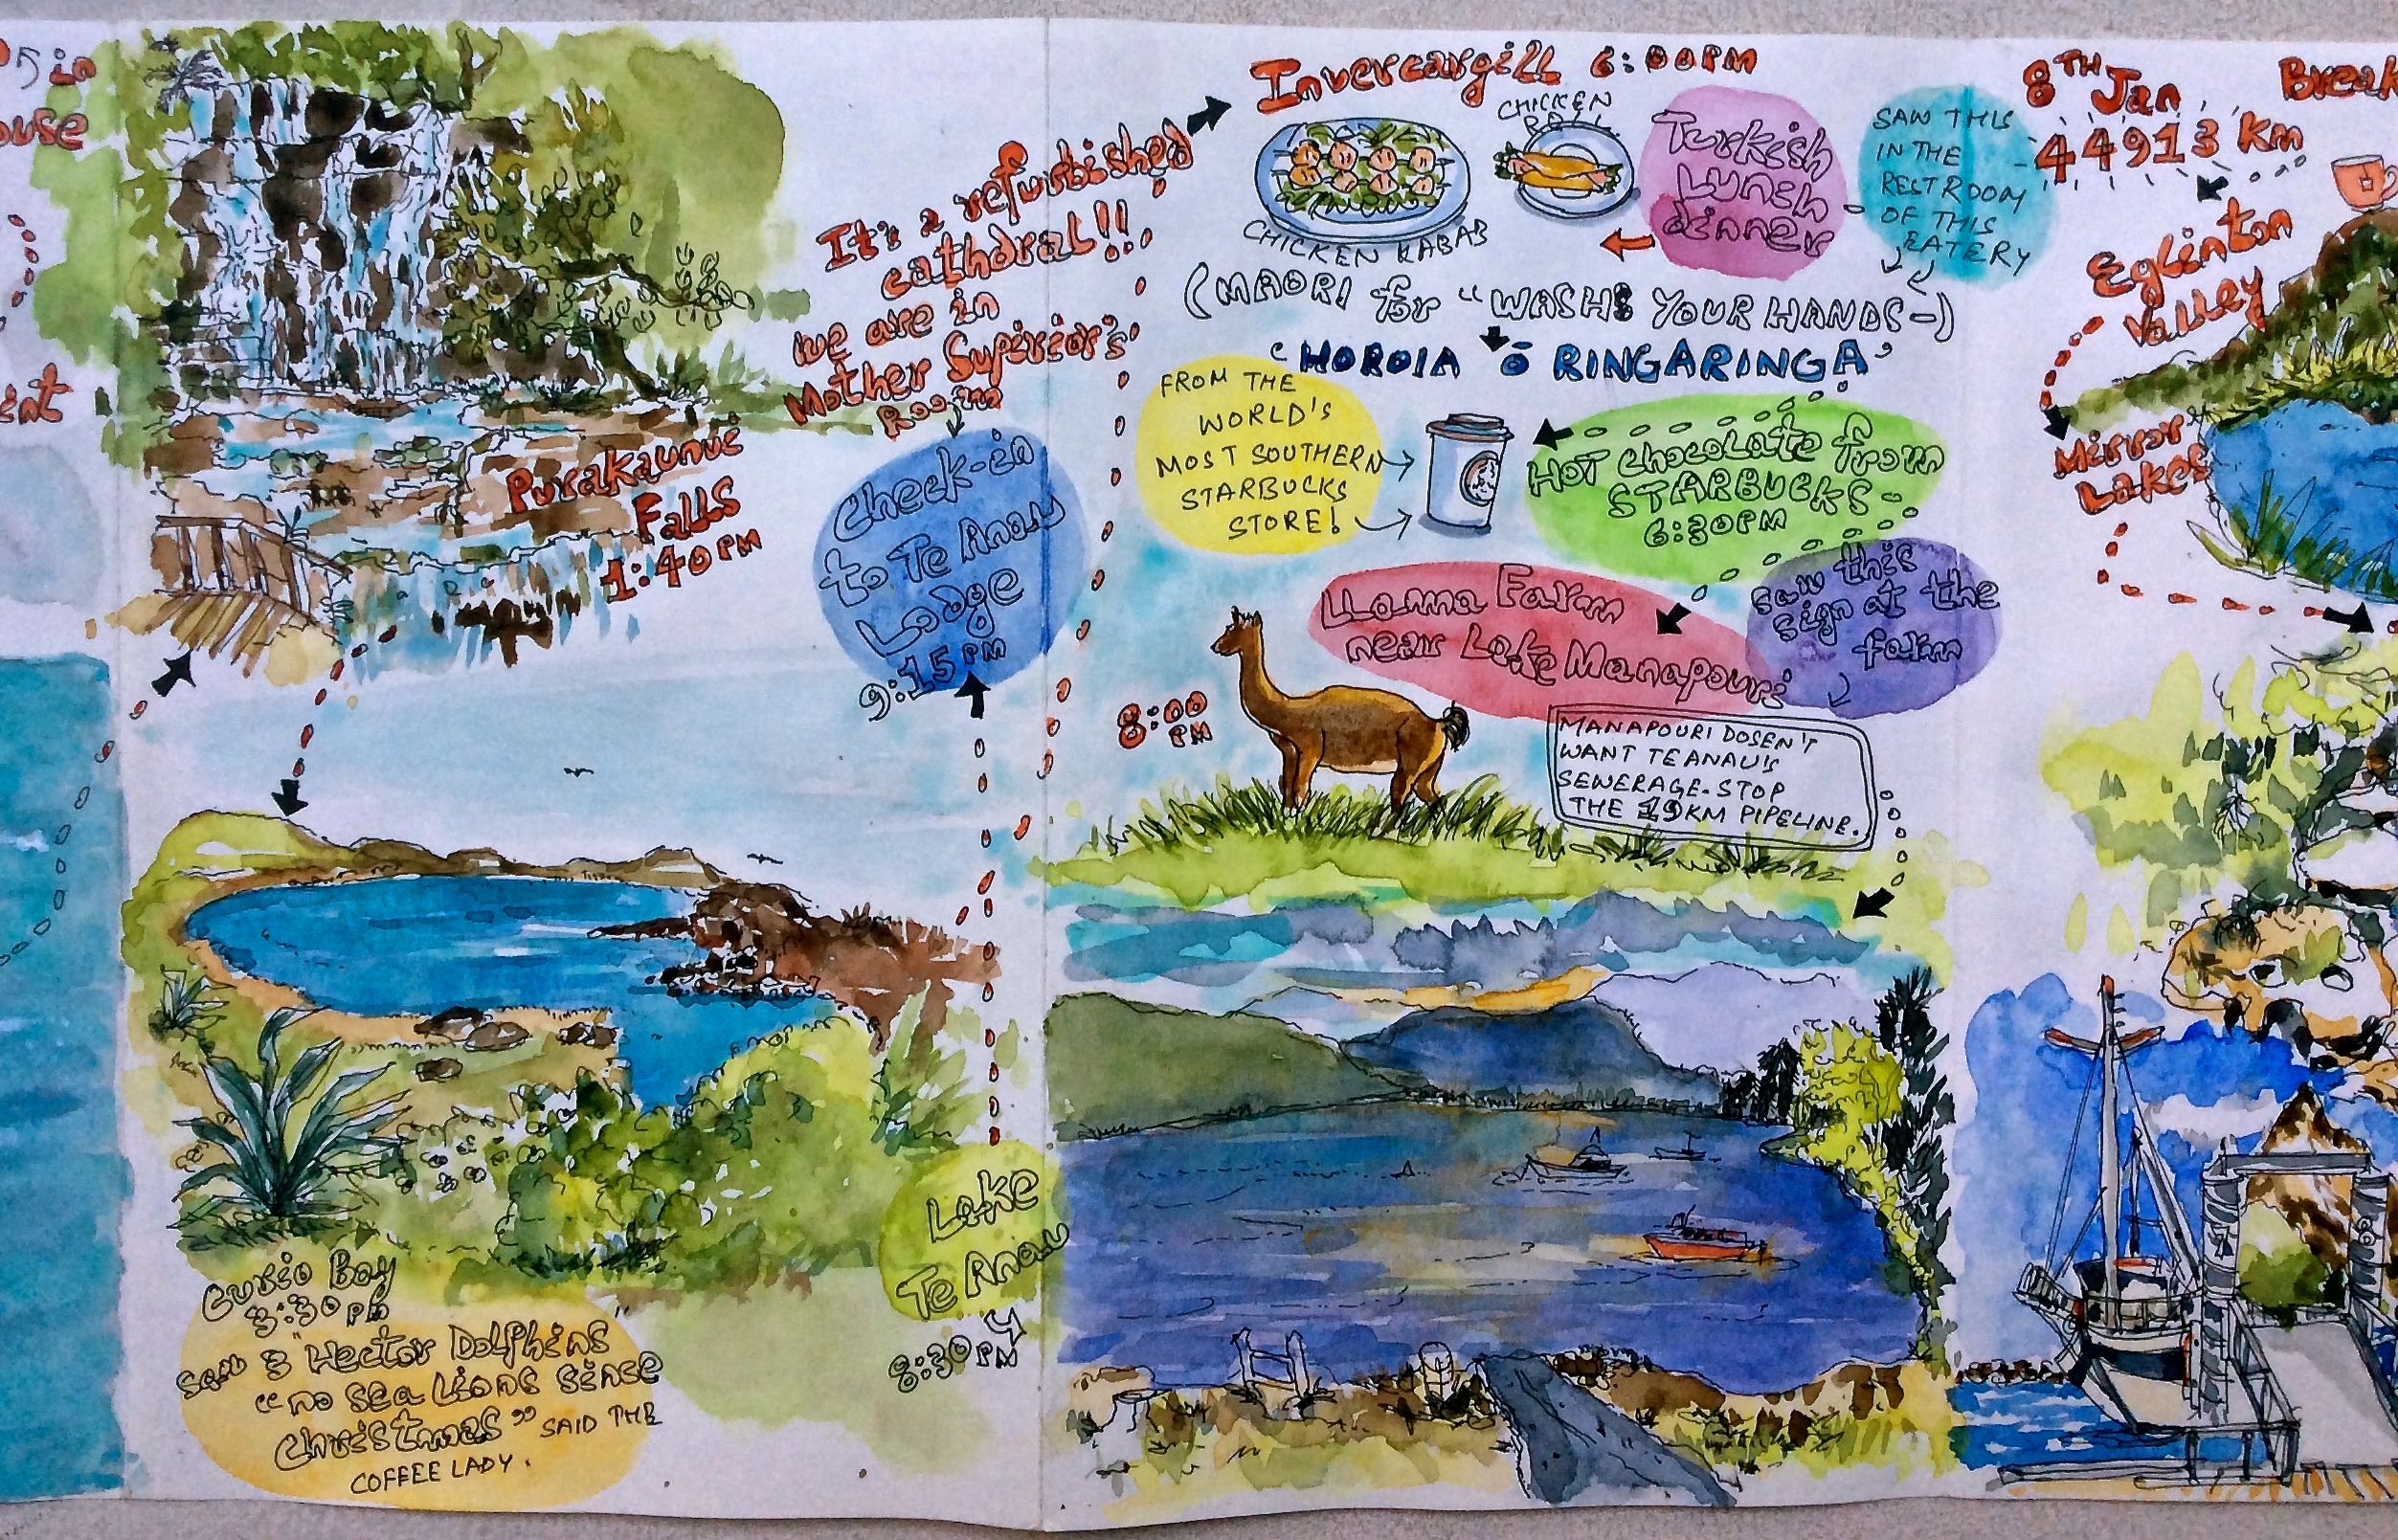 5 in
Purakaunui
Falls
1:40 PM
Curio Bay
3:30 PM
saw 3 "Hector Dolphins"
"no sea Lions since
Christmas" SAID THE
COFFEE LADY.
It's a refurbished
cathdral!!
we are in
Mother Supirior's
Room
Check-in
to Te Anau
Lodge
9:15 PM
Lake
Te Anau
8:30 PM
Invercargill 6:00PM
CHICKEN
ROLL
CHICKEN KABAB
Turkish
Lunch
dinner
SAW THIS
IN THE
RESTROOM
OF THIS
EATERY
(MAORI for "WASH YOUR HANDS-)
'HOROIA Ō RINGARINGA'
FROM THE
WORLD'S
MOST SOUTHERN
STARBUCKS
STORE!
HOT chocolate from
STARBUCKS-
6:30PM
LLama Farm
near Lake Manapouri
8:00
PM
saw this
sign at the
farm
MANAPOURI DOSEN'T
WANT TEANAU'S
SEWERAGE-STOP
THE 19KM PIPELINE.
8TH Jan
44913 Km
Break
Eglinton
Valley
Mirror
Lakes